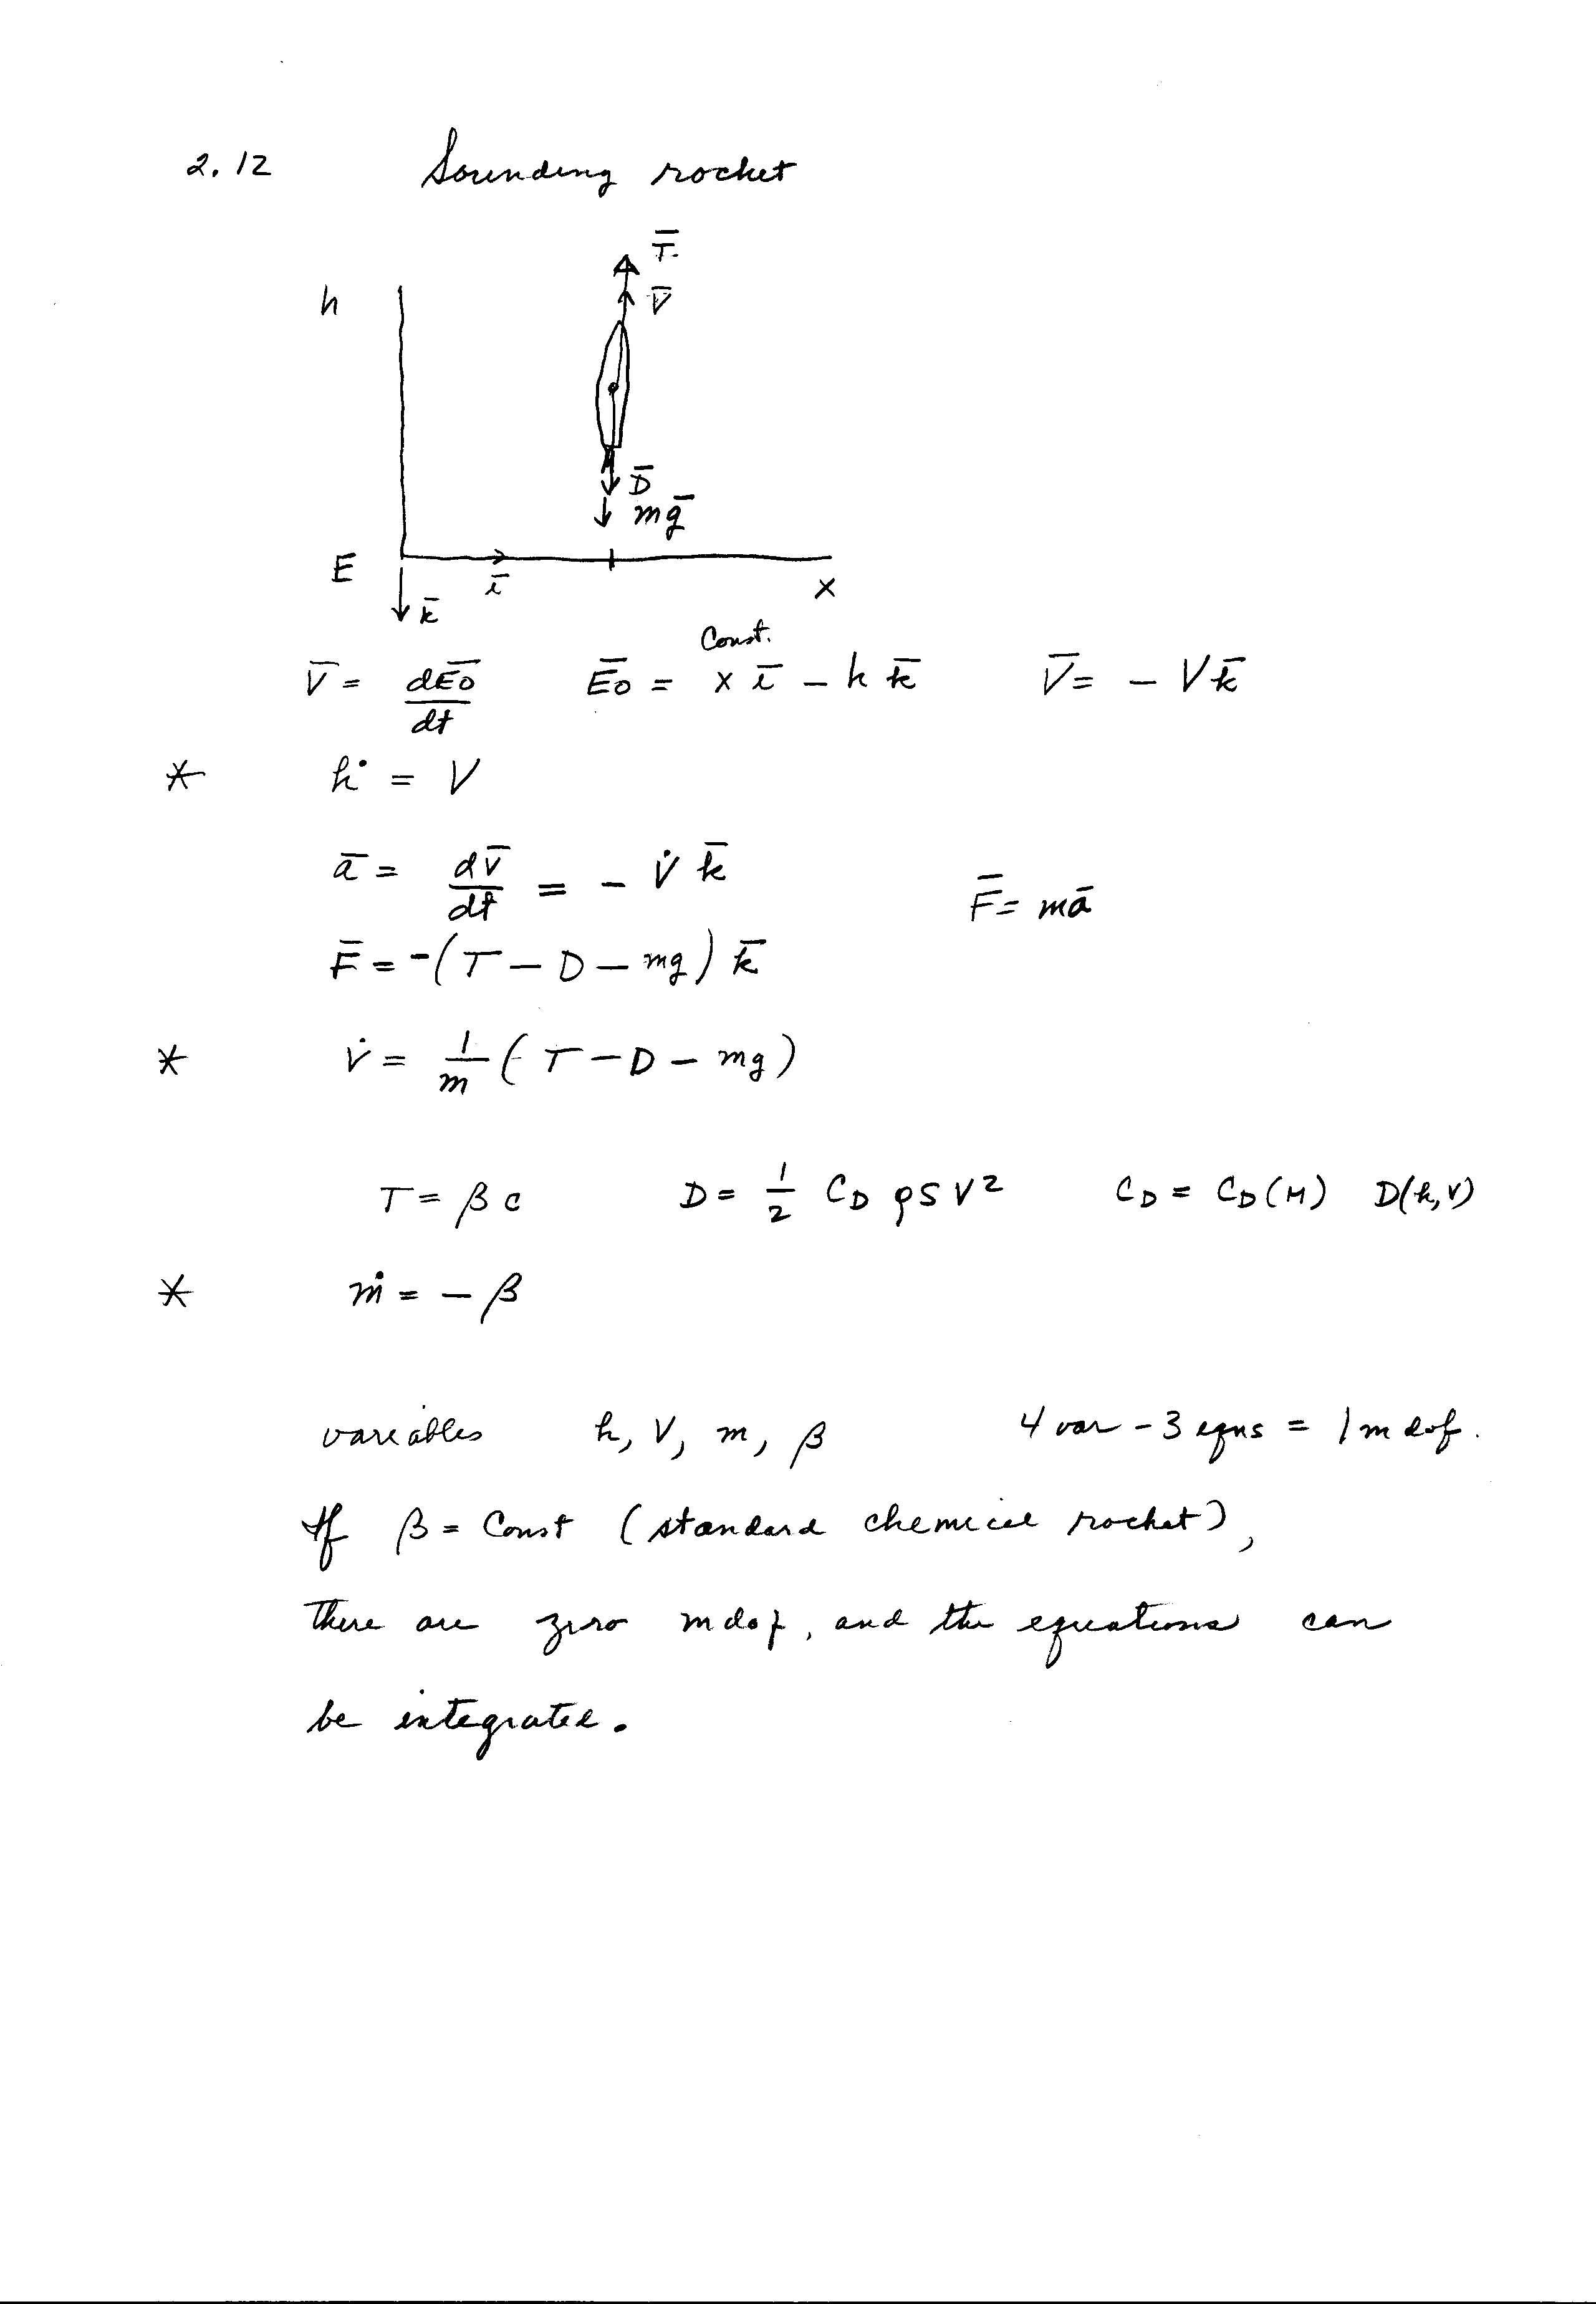 2.12 Sounding rocket
T̄
h V̄
D̄
mḡ
E ī x
k̄
Const.
V̄ = dĒO/dt ĒO = x ī – h k̄ V̄ = – V k̄
* ḣ = V
ā = dV̄/dt = – V̇ k̄ F̄ = mā
F̄ = -(T – D – mg) k̄
* V̇ = 1/m (T – D – mg)
T = β c D = 1/2 C_D ρ S V² C_D = C_D(M) D(h, V)
* ṁ = – β
variables h, V, m, β 4 var – 3 eqns = 1 mdof.
If β = Const (standard chemical rocket),
there are zero mdof, and the equations can
be integrated.